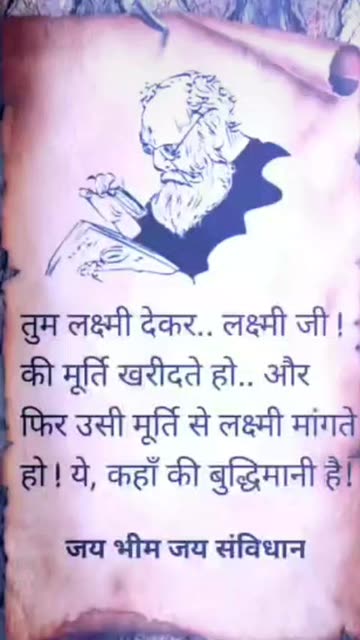 तुम लक्ष्मी देकर.. लक्ष्मी जी !
की मूर्ति खरीदते हो.. और
फिर उसी मूर्ति से लक्ष्मी मांगते
हो ! ये, कहाँ की बुद्धिमानी है!
जय भीम जय संविधान